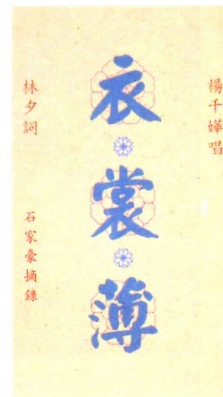 楊千嬅唱
衣裳薄
林夕詞
石家豪摘錄